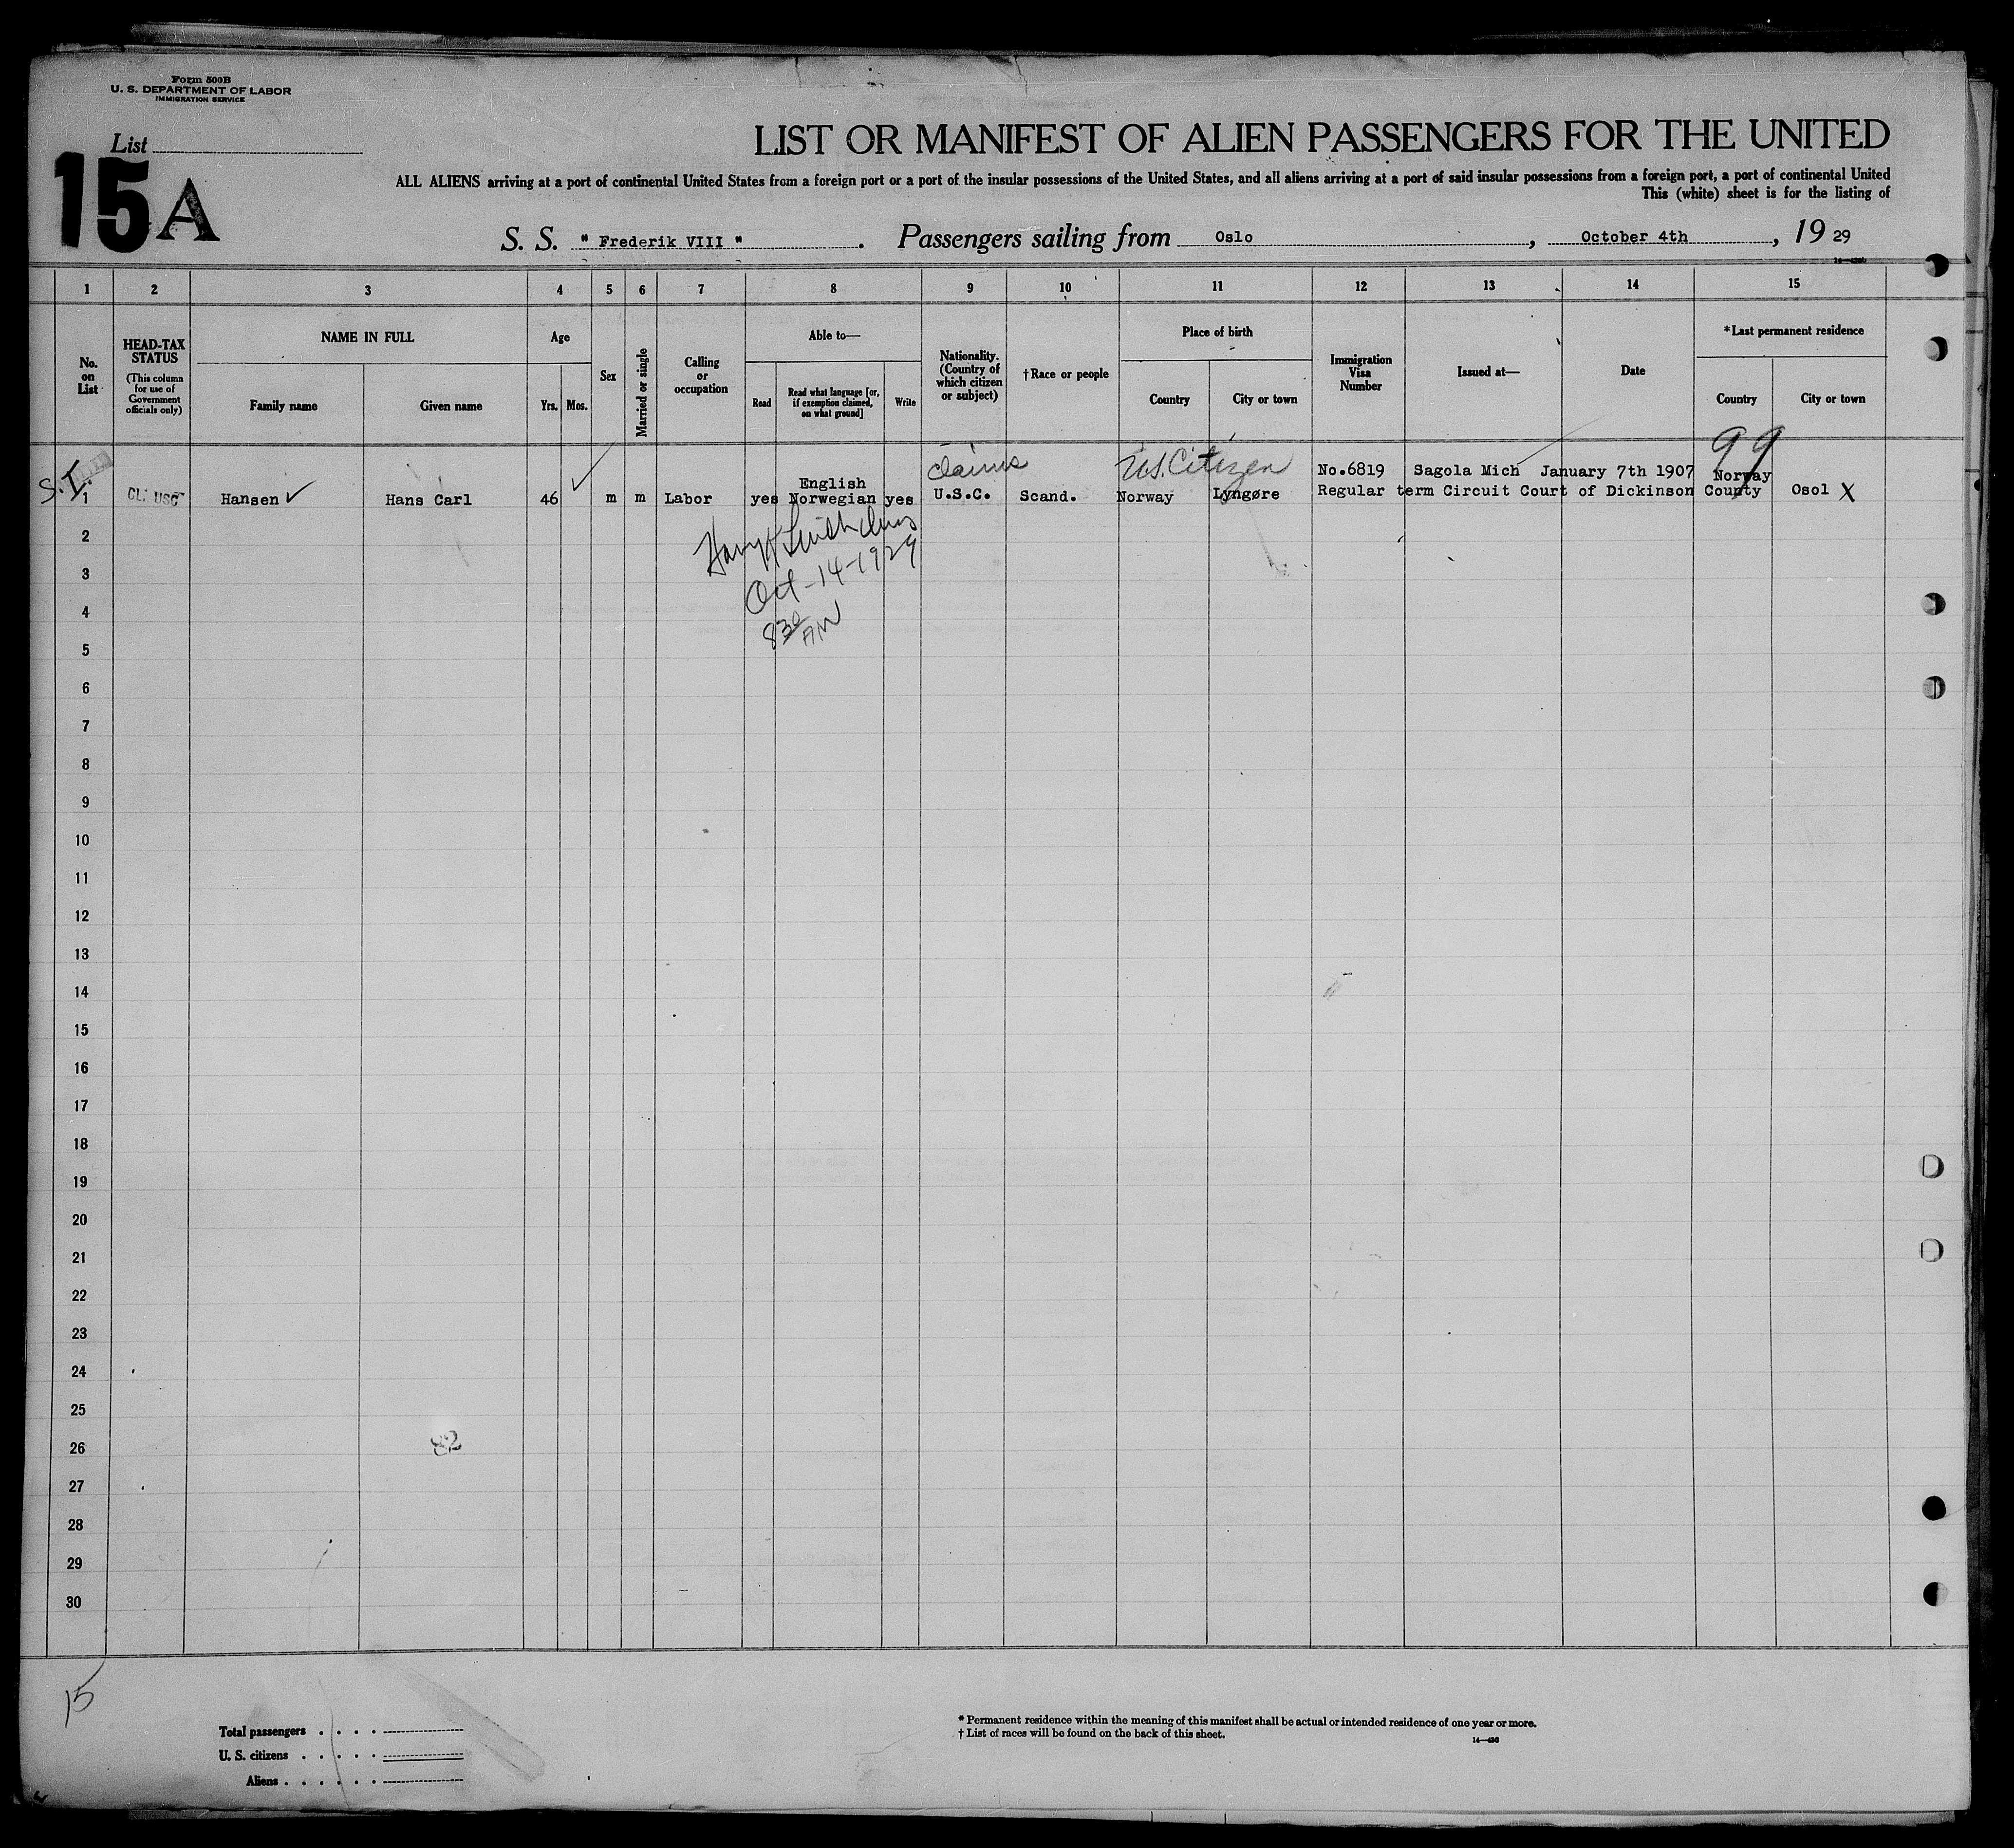 Form 500B
U. S. DEPARTMENT OF LABOR
IMMIGRATION SERVICE
List
15 A
LIST OR MANIFEST OF ALIEN PASSENGERS FOR THE UNITED
ALL ALIENS arriving at a port of continental United States from a foreign port or a port of the insular possessions of the United States, and all aliens arriving at a port of said insular possessions from a foreign port, a port of continental United
This (white) sheet is for the listing of
S. S. " Frederik VIII " . Passengers sailing from Oslo , October 4th , 19 29
1 2 3 4 5 6 7 8 9 10 11 12 13 14 15
No. on List
HEAD-TAX STATUS
(This column for use of Government officials only)
NAME IN FULL
Family name
Given name
Age
Yrs. Mos.
Sex
Married or single
Calling or occupation
Able to—
Read
Read what language [or, if exemption claimed, on what ground]
Write
Nationality. (Country of which citizen or subject)
†Race or people
Place of birth
Country
City or town
Immigration Visa Number
Issued at—
Date
*Last permanent residence
Country
City or town
99
claims US. Citizen
S.I.
English No.6819 Sagola Mich January 7th 1907 Norway
1 CL: USC Hansen ✓ Hans Carl 46 ✓ m m Labor yes Norwegian yes U.S.C. Scand. Norway Lyngøre Regular term Circuit Court of Dickinson County Osol X
Smith
Oct-14-1929
8 30 AM
2
3
4
5
6
7
8
9
10
11
12
13
14
15
16
17
18
19
20
21
22
23
24
25
26
82
27
28
29
30
15
Total passengers . . . .
U. S. citizens . . . . .
Aliens . . . . . .
* Permanent residence within the meaning of this manifest shall be actual or intended residence of one year or more.
† List of races will be found on the back of this sheet.
14—430